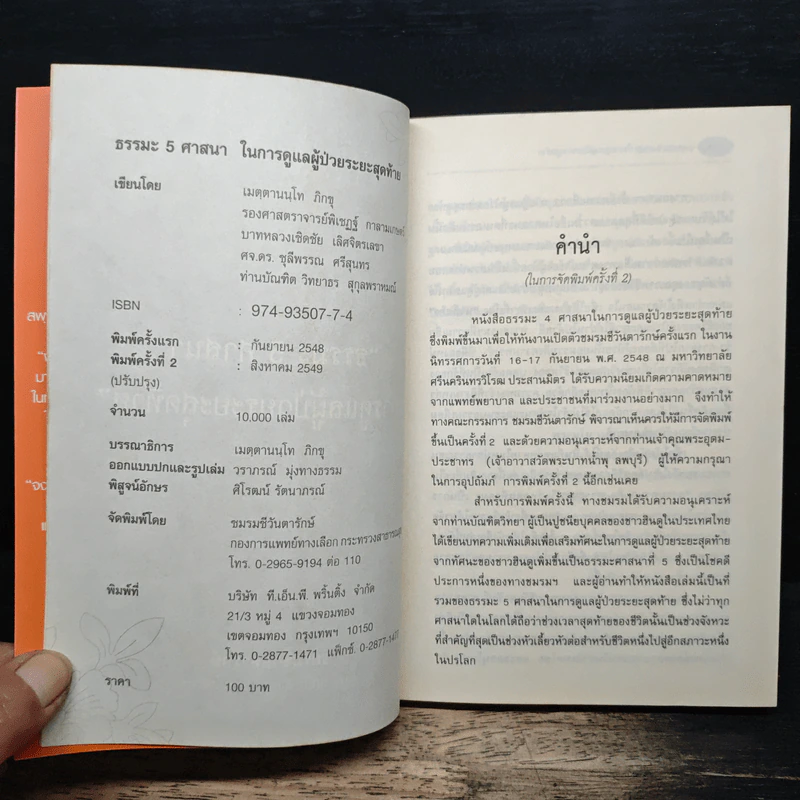 ธรรมะ 5 ศาสนา ในการดูแลผู้ป่วยระยะสุดท้าย
เขียนโดย เมตฺตานนฺโท ภิกขุ
รองศาสตราจารย์พิเชฏฐ์
บาทหลวงเชิดชัย เลิศจิตรเลขา
ศจ.ดร. ชุลีพรรณ ศรีสุนทร
ท่านบัณฑิต วิทยาธร สุกุลพราหมณ์
ISBN : 974-93507-7-4
พิมพ์ครั้งแรก : กันยายน 2548
พิมพ์ครั้งที่ 2 : สิงหาคม 2549
(ปรับปรุง)
จำนวน 10.000 เล่ม
บรรณาธิการ เมตฺตานนฺโท ภิกขุ
ออกแบบปกและรูปเล่ม วราภรณ์ มุ่งทางธรรม
พิสูจน์อักษร ศิโรฒน์ รัตนาภรณ์
จัดพิมพ์โดย ชมรมชีวันตารักษ์
กองการแพทย์ทางเลือก กระทรวงสาธารณสุข
โทร. 0-2965-9194 ต่อ 110
พิมพ์ที่ บริษัท ที.เอ็น.พี. พริ้นติ้ง จำกัด
21/3 หมู่ 4 แขวงจอมทอง
เขตจอมทอง กรุงเทพฯ 10150
โทร. 0-2877-1471 แฟ็กซ์.
ราคา 100 บาท
คำนำ
(ในการจัดพิมพ์ครั้งที่ 2)
หนังสือธรรมะ 4 ศาสนาในการดูแลผู้ป่วยระยะสุดท้าย
ซึ่งพิมพ์ขึ้นมาเพื่อให้ทันงานเปิดตัวชมรมชีวันตารักษ์ครั้งแรก ในงาน
นิทรรศการวันที่ 16-17 กันยายน พ.ศ. 2548 ณ มหาวิทยาลัย
ศรีนครินทรวิโรฒ ประสานมิตร ได้รับความนิยมเกิดความคาดหมาย
จากแพทย์พยาบาล และประชาชนที่มาร่วมงานอย่างมาก จึงทำให้
ทางคณะกรรมการ ชมรมชีวันตารักษ์ พิจารณาเห็นควรให้มีการจัดพิมพ์
ขึ้นเป็นครั้งที่ 2 และด้วยความอนุเคราะห์จากท่านเจ้าคุณพระอุดม-
ประชาทร (เจ้าอาวาสวัดพระบาทน้ำพุ ลพบุรี) ผู้ให้ความกรุณา
ในการอุปถัมภ์ การพิมพ์ครั้งที่ 2 นี้อีกเช่นเคย
สำหรับการพิมพ์ครั้งนี้ ทางชมรมได้รับความอนุเคราะห์
จากท่านบัณฑิตวิทยา ผู้เป็นปูชนียบุคคลของชาวฮินดูในประเทศไทย
ได้เขียนบทความเพิ่มเติมเพื่อเสริมทัศนะในการดูแลผู้ป่วยระยะสุดท้าย
จากทัศนะของชาวฮินดูเพิ่มขึ้นเป็นธรรมะศาสนาที่ 5 ซึ่งเป็นโชคดี
ประการหนึ่งของทางชมรมฯ และผู้อ่านทำให้หนังสือเล่มนี้เป็นที่
รวมของธรรมะ 5 ศาสนาในการดูแลผู้ป่วยระยะสุดท้าย ซึ่งไม่ว่าทุก
ศาสนาใดในโลกได้ถือว่าช่วงเวลาสุดท้ายของชีวิตนั้นเป็นช่วงจังหวะ
ที่สำคัญที่สุดเป็นช่วงหัวเลี้ยวหัวต่อสำหรับชีวิตหนึ่งไปสู่อีกสภาวะหนึ่ง
ในปรโลก